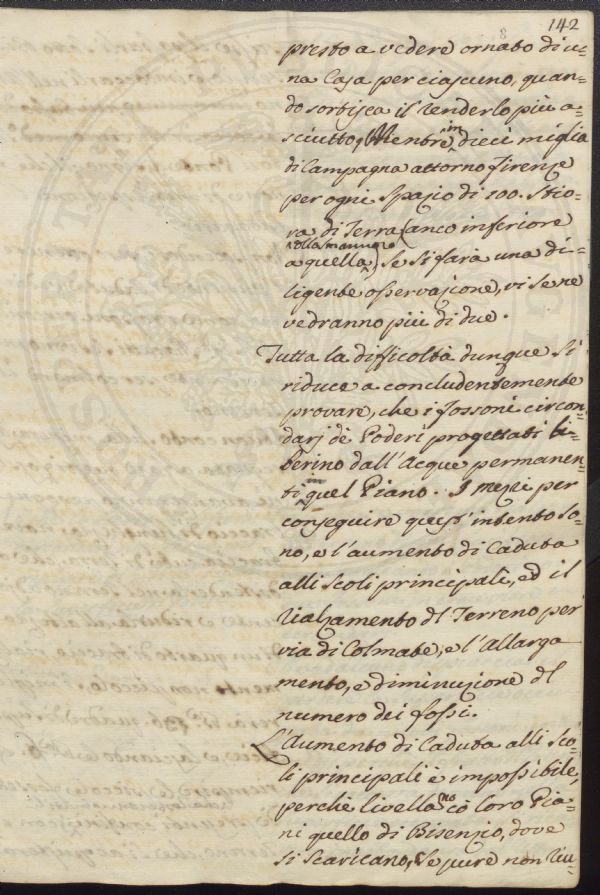 142
8
presto a vedere ornato di u=
na Casa per ciascuno, quan=
do sortisca il renderlo più a=
sciutto, Mentre in dieci miglia
di Campagna attorno Firenze
per ogni Spazio di 100. Stio=
ra di Terra (anco inferiore
a quella), se si farà una di=
ligente osservazione, vi se ne
vedranno più di due.
Tutta la difficoltà dunque si
riduce a concludentemente
provare, che i fossoni circon=
darj dè Poderi progettati li=
berino dall'Acque permanen=
ti in quel Piano. I mezzi per
conseguire quest'intento so=
no, e l'aumento di Caduta
alli scoli principali, ed il
rialzamento dl Terreno per
via di Colmate, e l'allarga
mento, e diminuzione dl
numero dei fossi.
L'Aumento di Caduta alli sco=
li principali è impossibile,
perchè livellano cò loro Pia=
ni quello di Bisenzio, dove
si scaricano, Se pure non riu=